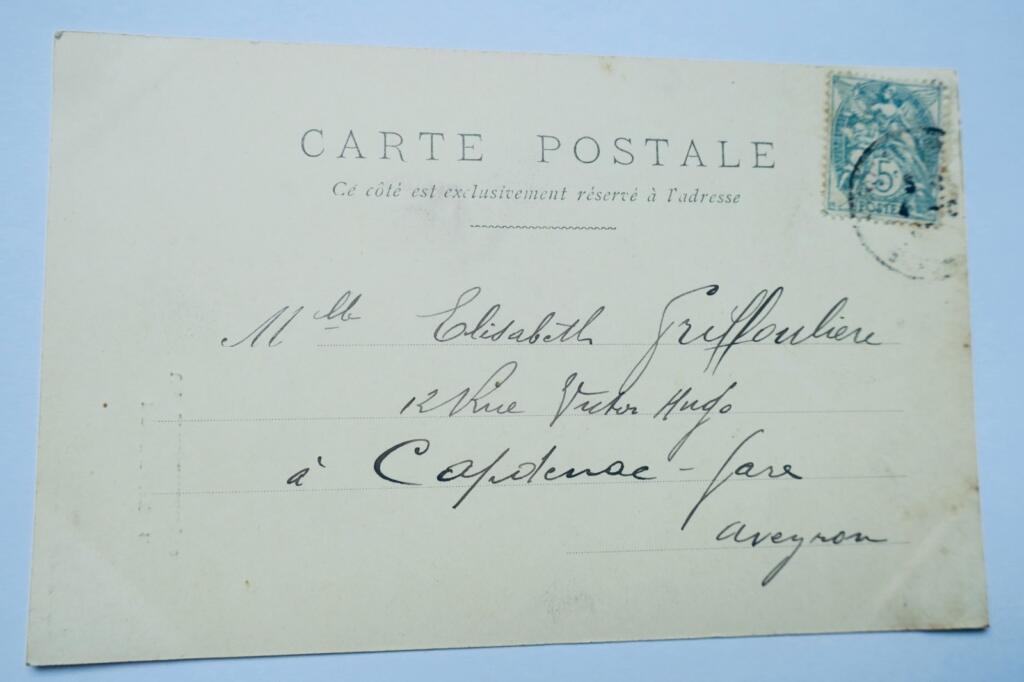 CARTE POSTALE
Cé côté est exclusivement réservé à l'adresse
5c
POSTES
Mlle Elisabeth Griffouliere
12 Rue Victor Hugo
à Capdenac-Gare
Aveyron